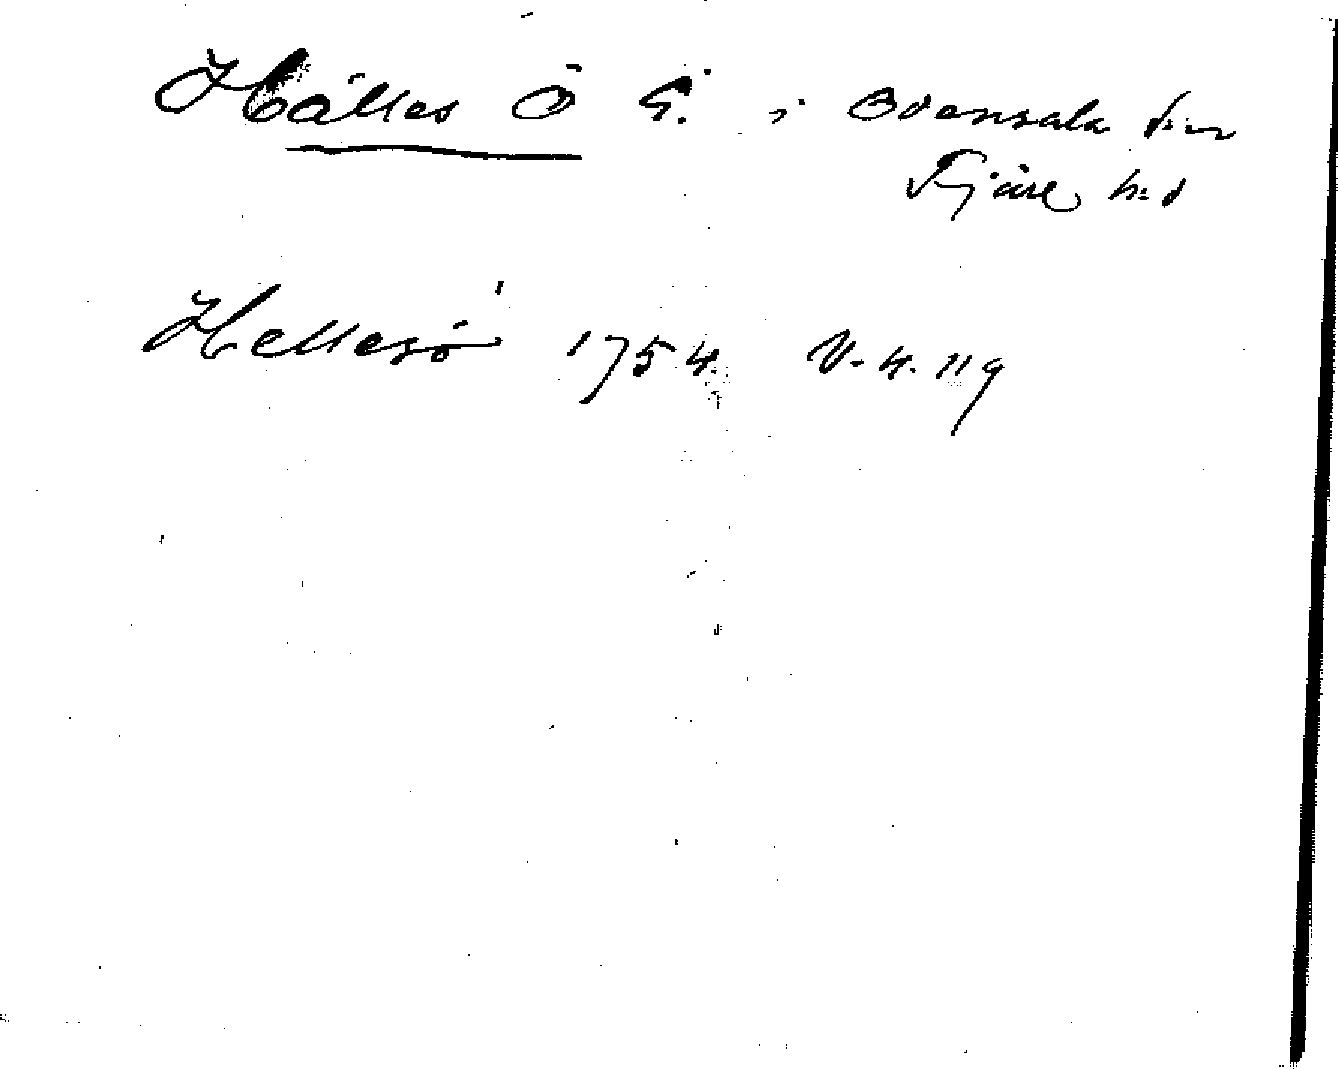 Hälles Ö G. i Odensala s:n
Fjäre h:d
Hellesö 1754. V. 4. 119